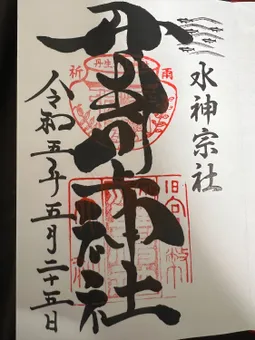 水神宗社
丹生川上神社
令和五年五月二十五日
丹生